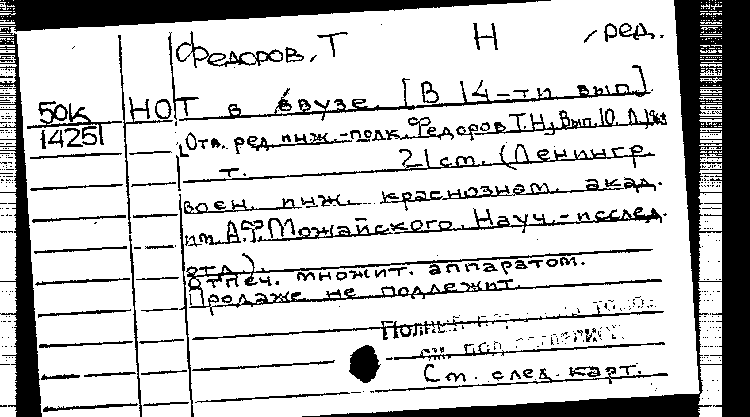 Федоров, Т Н , ред.
НОТ в ввузе. [В 14-ти вып]
50к
14251
[Отв. ред. инж.-полк. Федоров Т.Н.] Вып. 10. Л,
т. 21 см. (Ленингр.
воен. инж. краснознам. акад.
им. А.Ф. Можайского. Науч.-исслед.
отд.).
Отпеч. множит. аппаратом.
Продаже не подлежит.
Полный
см. под
См. след. карт.